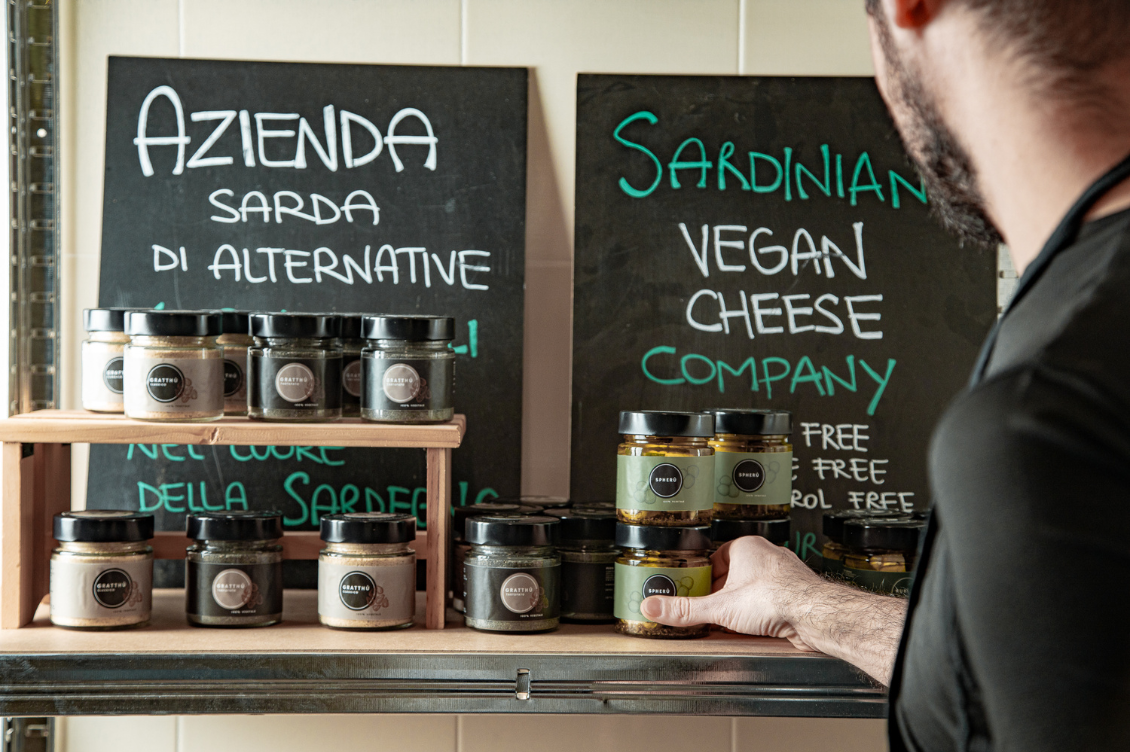 AZIENDA
SARDA
DI ALTERNATIVE
NEL CUORE
DELLA SARDEGNA
SARDINIAN
VEGAN
CHEESE
COMPANY
FREE
FREE
FREE
GRATTHÙ
GRATTHÙ
GRATTHÙ
SPHERÙ
SPHERÙ
GRATTHÙ
GRATTHÙ
GRATTHÙ
GRATTHÙ
SPHERÙ